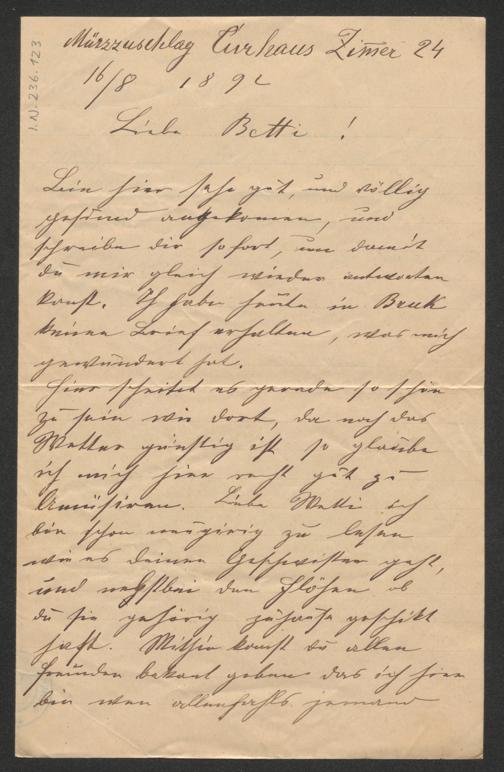 I.N. 236.123
Mürzzuschlag Curhaus Zimer 24
16/8 1892
Liebe Betti!
Bin hier sehr gut, und völlig
gesund angekomen, und
schreibe dir sofort, um damit
du mir gleich wieder antworten
kanst. Ich habe heute in Bruk
keinen Brief erhalten, was mich
gewundert hat.
Hier scheint es gerade so schön
zu sein wie dort, da noch das
Wetter günstig ist so glaube
ich mich hier recht gut zu
Amüsiren. Liebe Betti ich
bin schon neugirig zu lesen
wie es deinen Geschwister geht,
und nebstbei den Flöhen ob
du sie gehörig zuhause geschikt
hast. Mithin kanst du allen
Freunden bekant geben das ich hier
bin wen allenfahls jemand